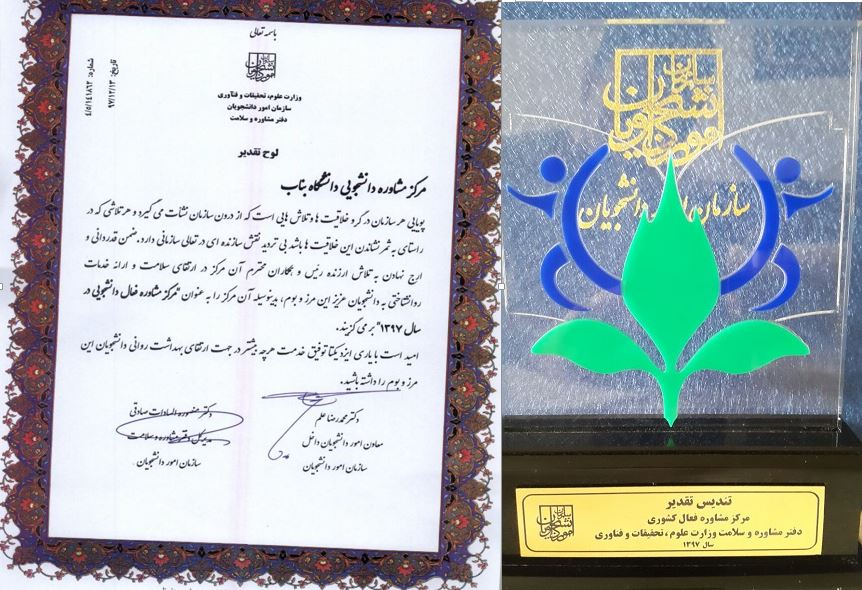 باسمه تعالی
سازمان امور دانشجویان
وزارت علوم، تحقیقات و فنّاوری
سازمان امور دانشجویان
دفتر مشاوره و سلامت
شماره: ۴/۵/۱۴۱۸۶۲
تاریخ: ۹۷/۱۲/۱۳
لوح تقدیر
مرکز مشاوره دانشجویی دانشگاه بناب
پویایی هر سازمان در گرو خلاقیت ها و تلاش هایی است که از درون سازمان نشات می گیرد و هر تلاشی که در
راستای به ثمر نشاندن این خلاقیت ها باشد بی تردید نقش سازنده ای در تعالی سازمانی دارد. ضمن قدردانی و
ارج نهادن به تلاش ارزنده رئیس و همکاران محترم آن مرکز در ارتقای سلامت و ارائه خدمات
روانشناختی به دانشجویان عزیز این مرز و بوم، بدینوسیله آن مرکز را به عنوان "مرکز مشاوره فعال دانشجویی در
سال ۱۳۹۷" بر می گزیند.
امید است با یاری ایزد یکتا توفیق خدمت هرچه بیشتر در جهت ارتقای بهداشت روانی دانشجویان این
مرز و بوم را داشته باشید.
دکتر محمدرضا علم
معاون امور دانشجویان داخل
سازمان امور دانشجویان
دکتر منصوره السادات صادقی
مدیرکل دفتر مشاوره و سلامت
سازمان امور دانشجویان
سازمان امور دانشجویان
سازمان امور دانشجویان
تندیس تقدیر
مرکز مشاوره فعال کشوری
دفتر مشاوره و سلامت وزارت علوم، تحقیقات و فناوری
سال ۱۳۹۷
سازمان امور دانشجویان